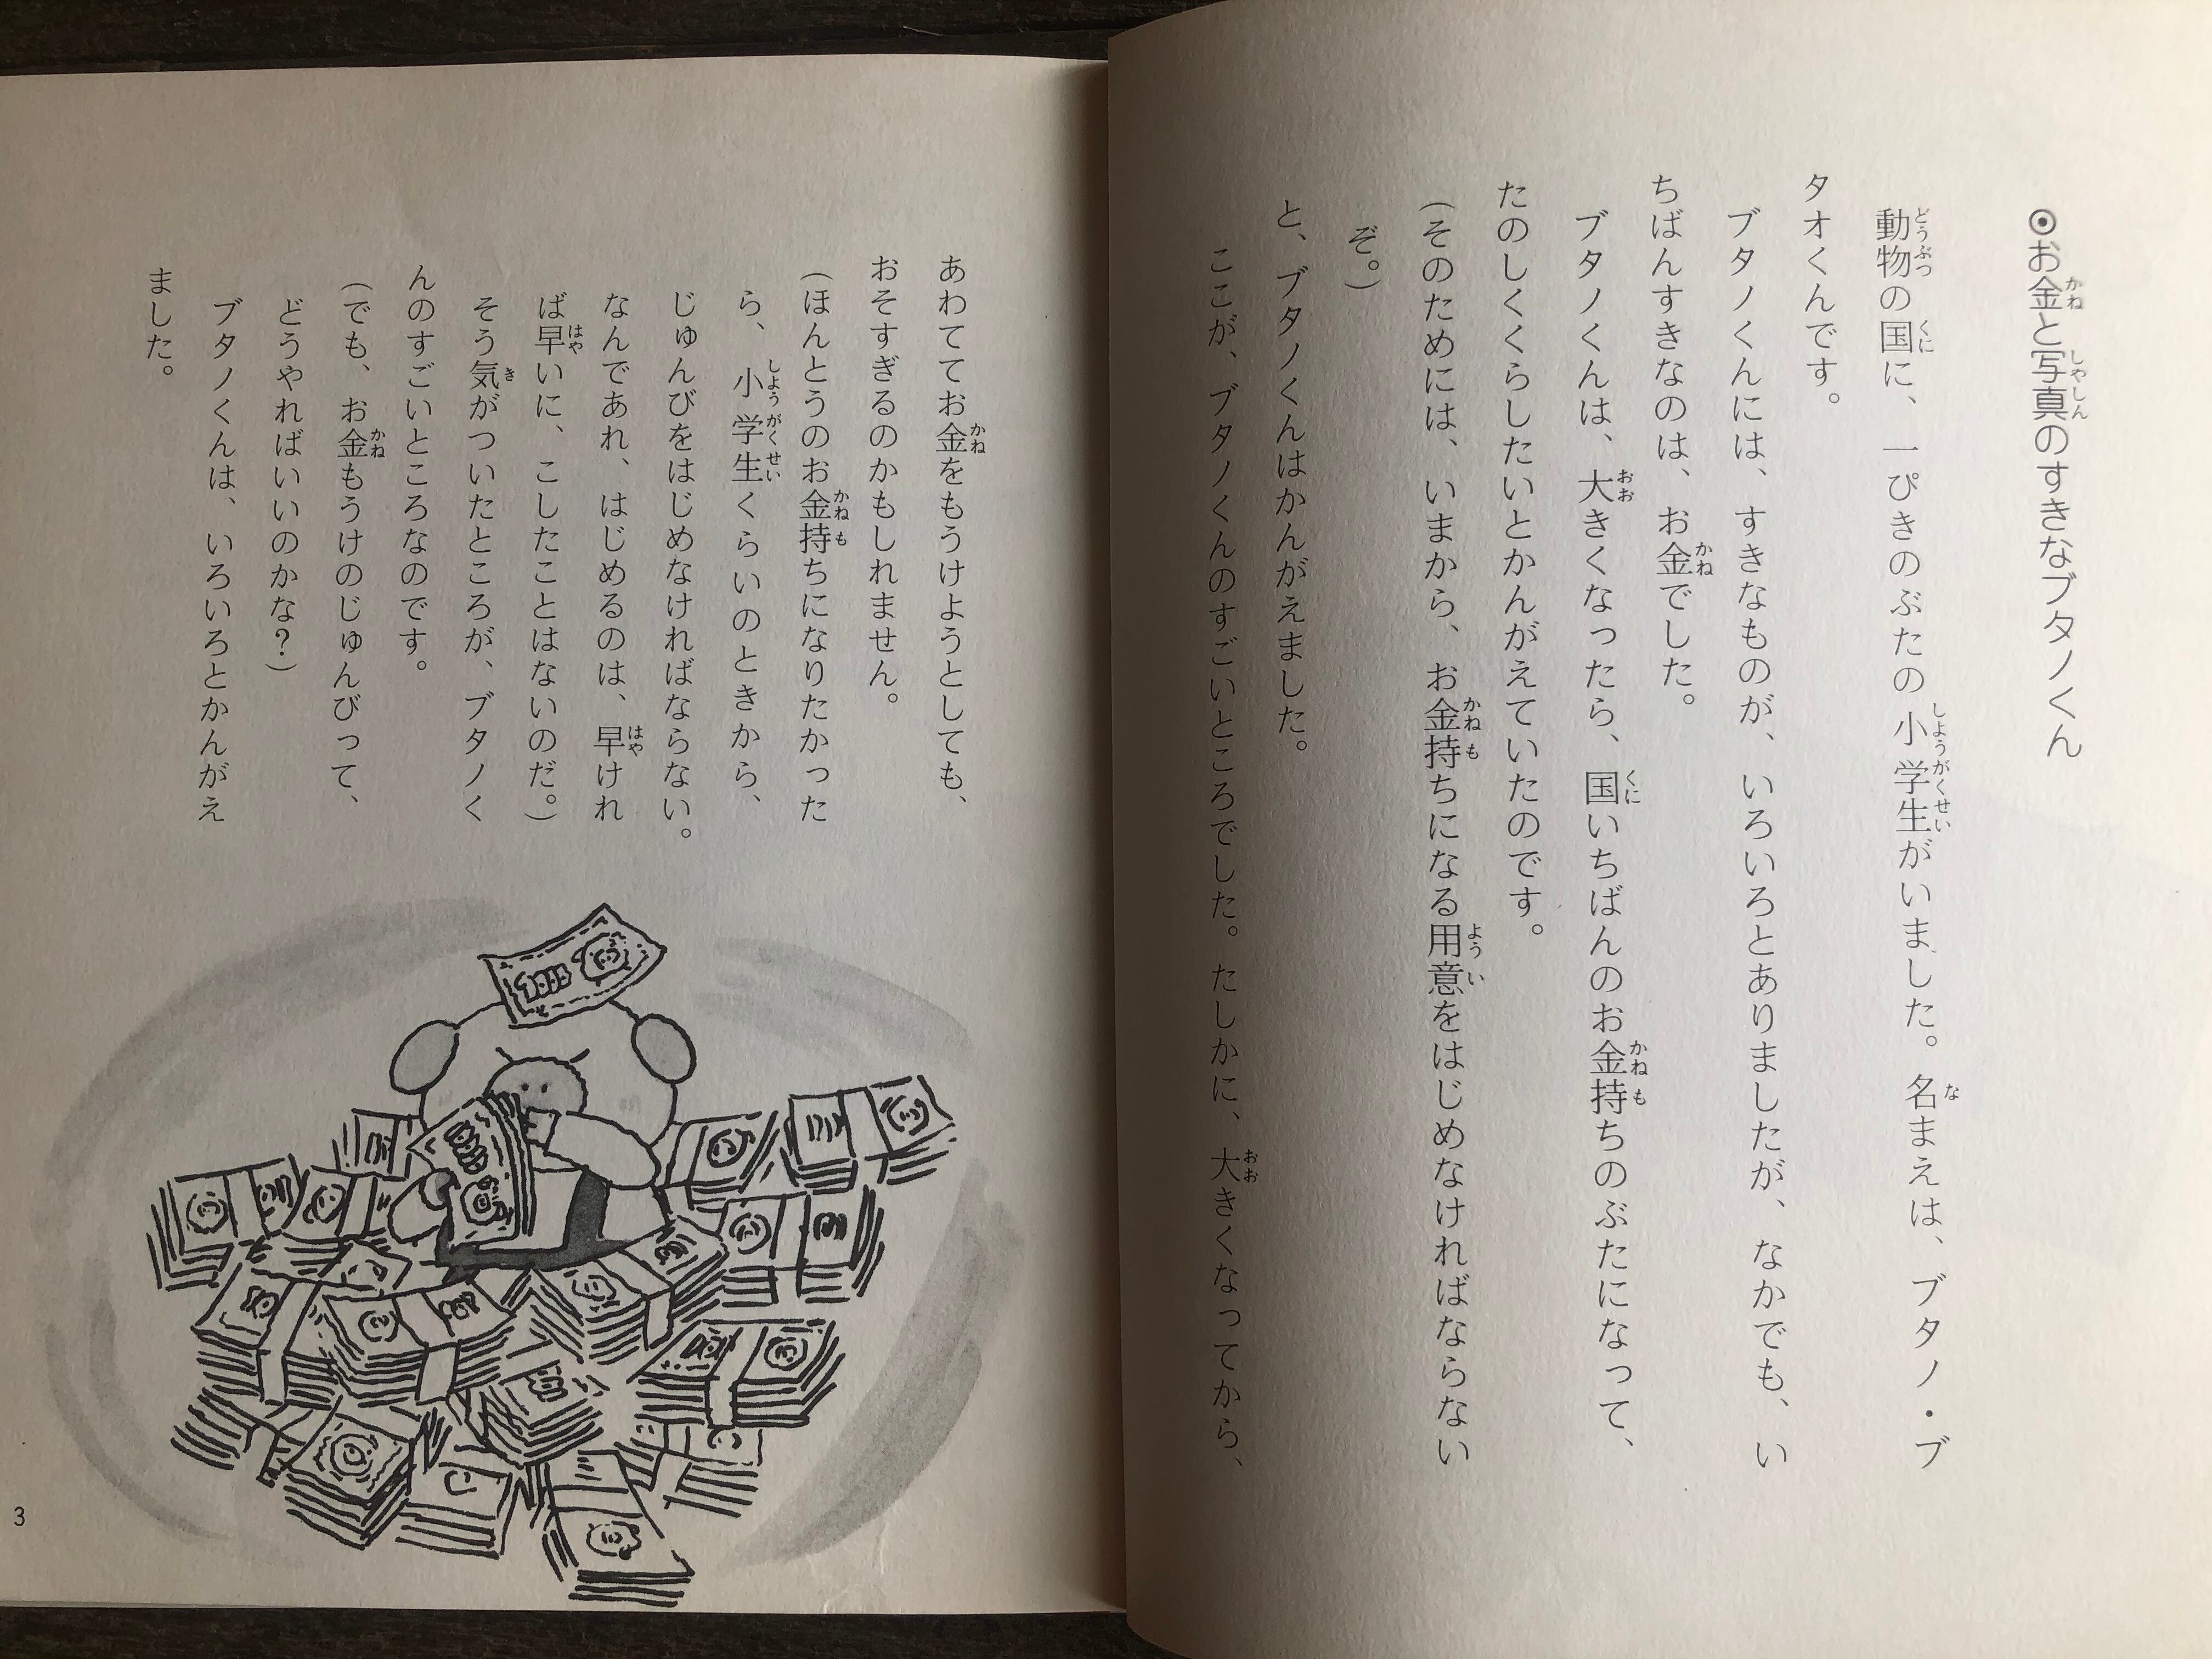 ◉お金と写真のすきなブタノくん
動物の国に、一ぴきのぶたの小学生がいました。名まえは、ブタノ・ブ
タオくんです。
ブタノくんには、すきなものが、いろいろとありましたが、なかでも、い
ちばんすきなのは、お金でした。
ブタノくんは、大きくなったら、国いちばんのお金持ちのぶたになって、
たのしくくらしたいとかんがえていたのです。
(そのためには、いまから、お金持ちになる用意をはじめなければならない
ぞ。)
と、ブタノくんはかんがえました。
ここが、ブタノくんのすごいところでした。たしかに、大きくなってから、
あわててお金をもうけようとしても、
おそすぎるのかもしれません。
(ほんとうのお金持ちになりたかった
ら、小学生くらいのときから、
じゅんびをはじめなければならない。
なんであれ、はじめるのは、早けれ
ば早いに、こしたことはないのだ。)
そう気がついたところが、ブタノく
んのすごいところなのです。
(でも、お金もうけのじゅんびって、
どうやればいいのかな?)
ブタノくんは、いろいろとかんがえ
ました。
3